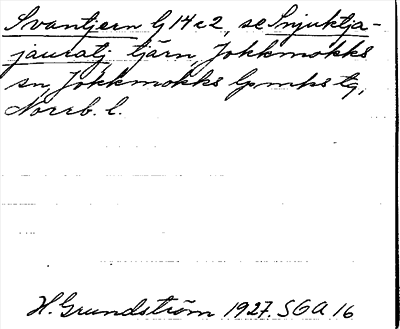 Svantjern G 14 c2, se Snjuktja-
jauratj tjärn, Jokkmokks
sn, Jokkmokks lpmks tg,
Norrb. l.
H. Grundström 1927. SOA 16